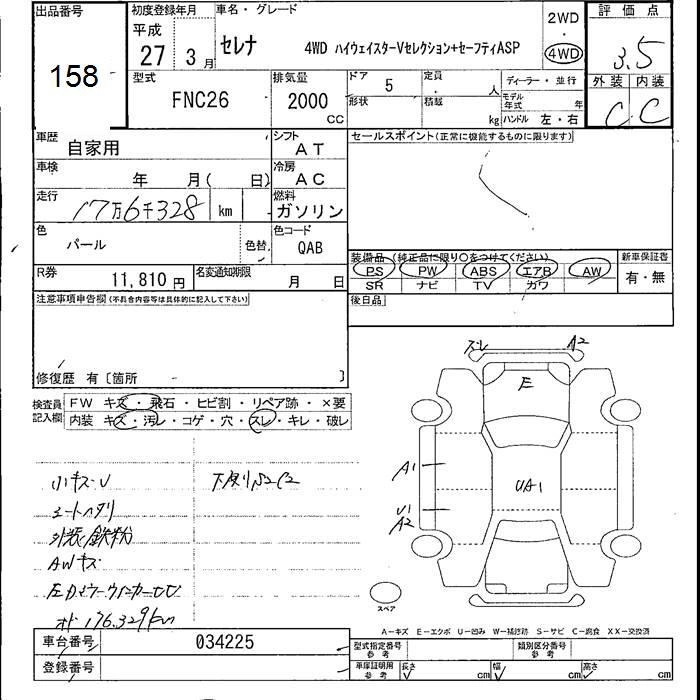 出品番号
158
初度登録年月
平成
27 3月
車名・グレード
セレナ
4WD ハイウェイスターVセレクション+セーフティASP
2WD
・
4WD
評価点
3.5
外装 内装
C C
型式
FNC26
排気量
2000
CC
ドア 5
形状
定員 人
積載 kg
ディーラー・並行
モデル年式 年
ハンドル 左・右
車歴
自家用
シフト
AT
車検
年 月( 日)
冷房
AC
走行
17万6千328 km
燃料
ガソリン
色
パール
色替
色コード
QAB
R券
11,810 円
名変通知期限
月 日
セールスポイント(正常に機能するものに限ります)
装備品(純正品に限り○をつけてください)
PS PW ABS エアB AW
SR ナビ TV カワ
新車保証書
有・無
後日品
注意事項申告欄(不具合内容等は具体的に記入して下さい)
修復歴 有〔箇所 〕
検査員記入欄
FW キズ・飛石・ヒビ割・リペア跡・×要
内装 キズ・汚レ・コゲ・穴・スレ・キレ・破レ
小キズU
下廻りS2C2
シートヘタリ
外装鉄粉
AWキズ
176.329km
スレ A2
E
A1
UA1
U1
A2
スペア
A-キズ E-エクボ U-凹み W-補修跡 S-サビ C-腐食 XX-交換済
車台番号
034225
登録番号
型式指定番号
参考
類別区分番号
参考
車庫証明用
参考
長さ cm 幅 cm 高さ cm